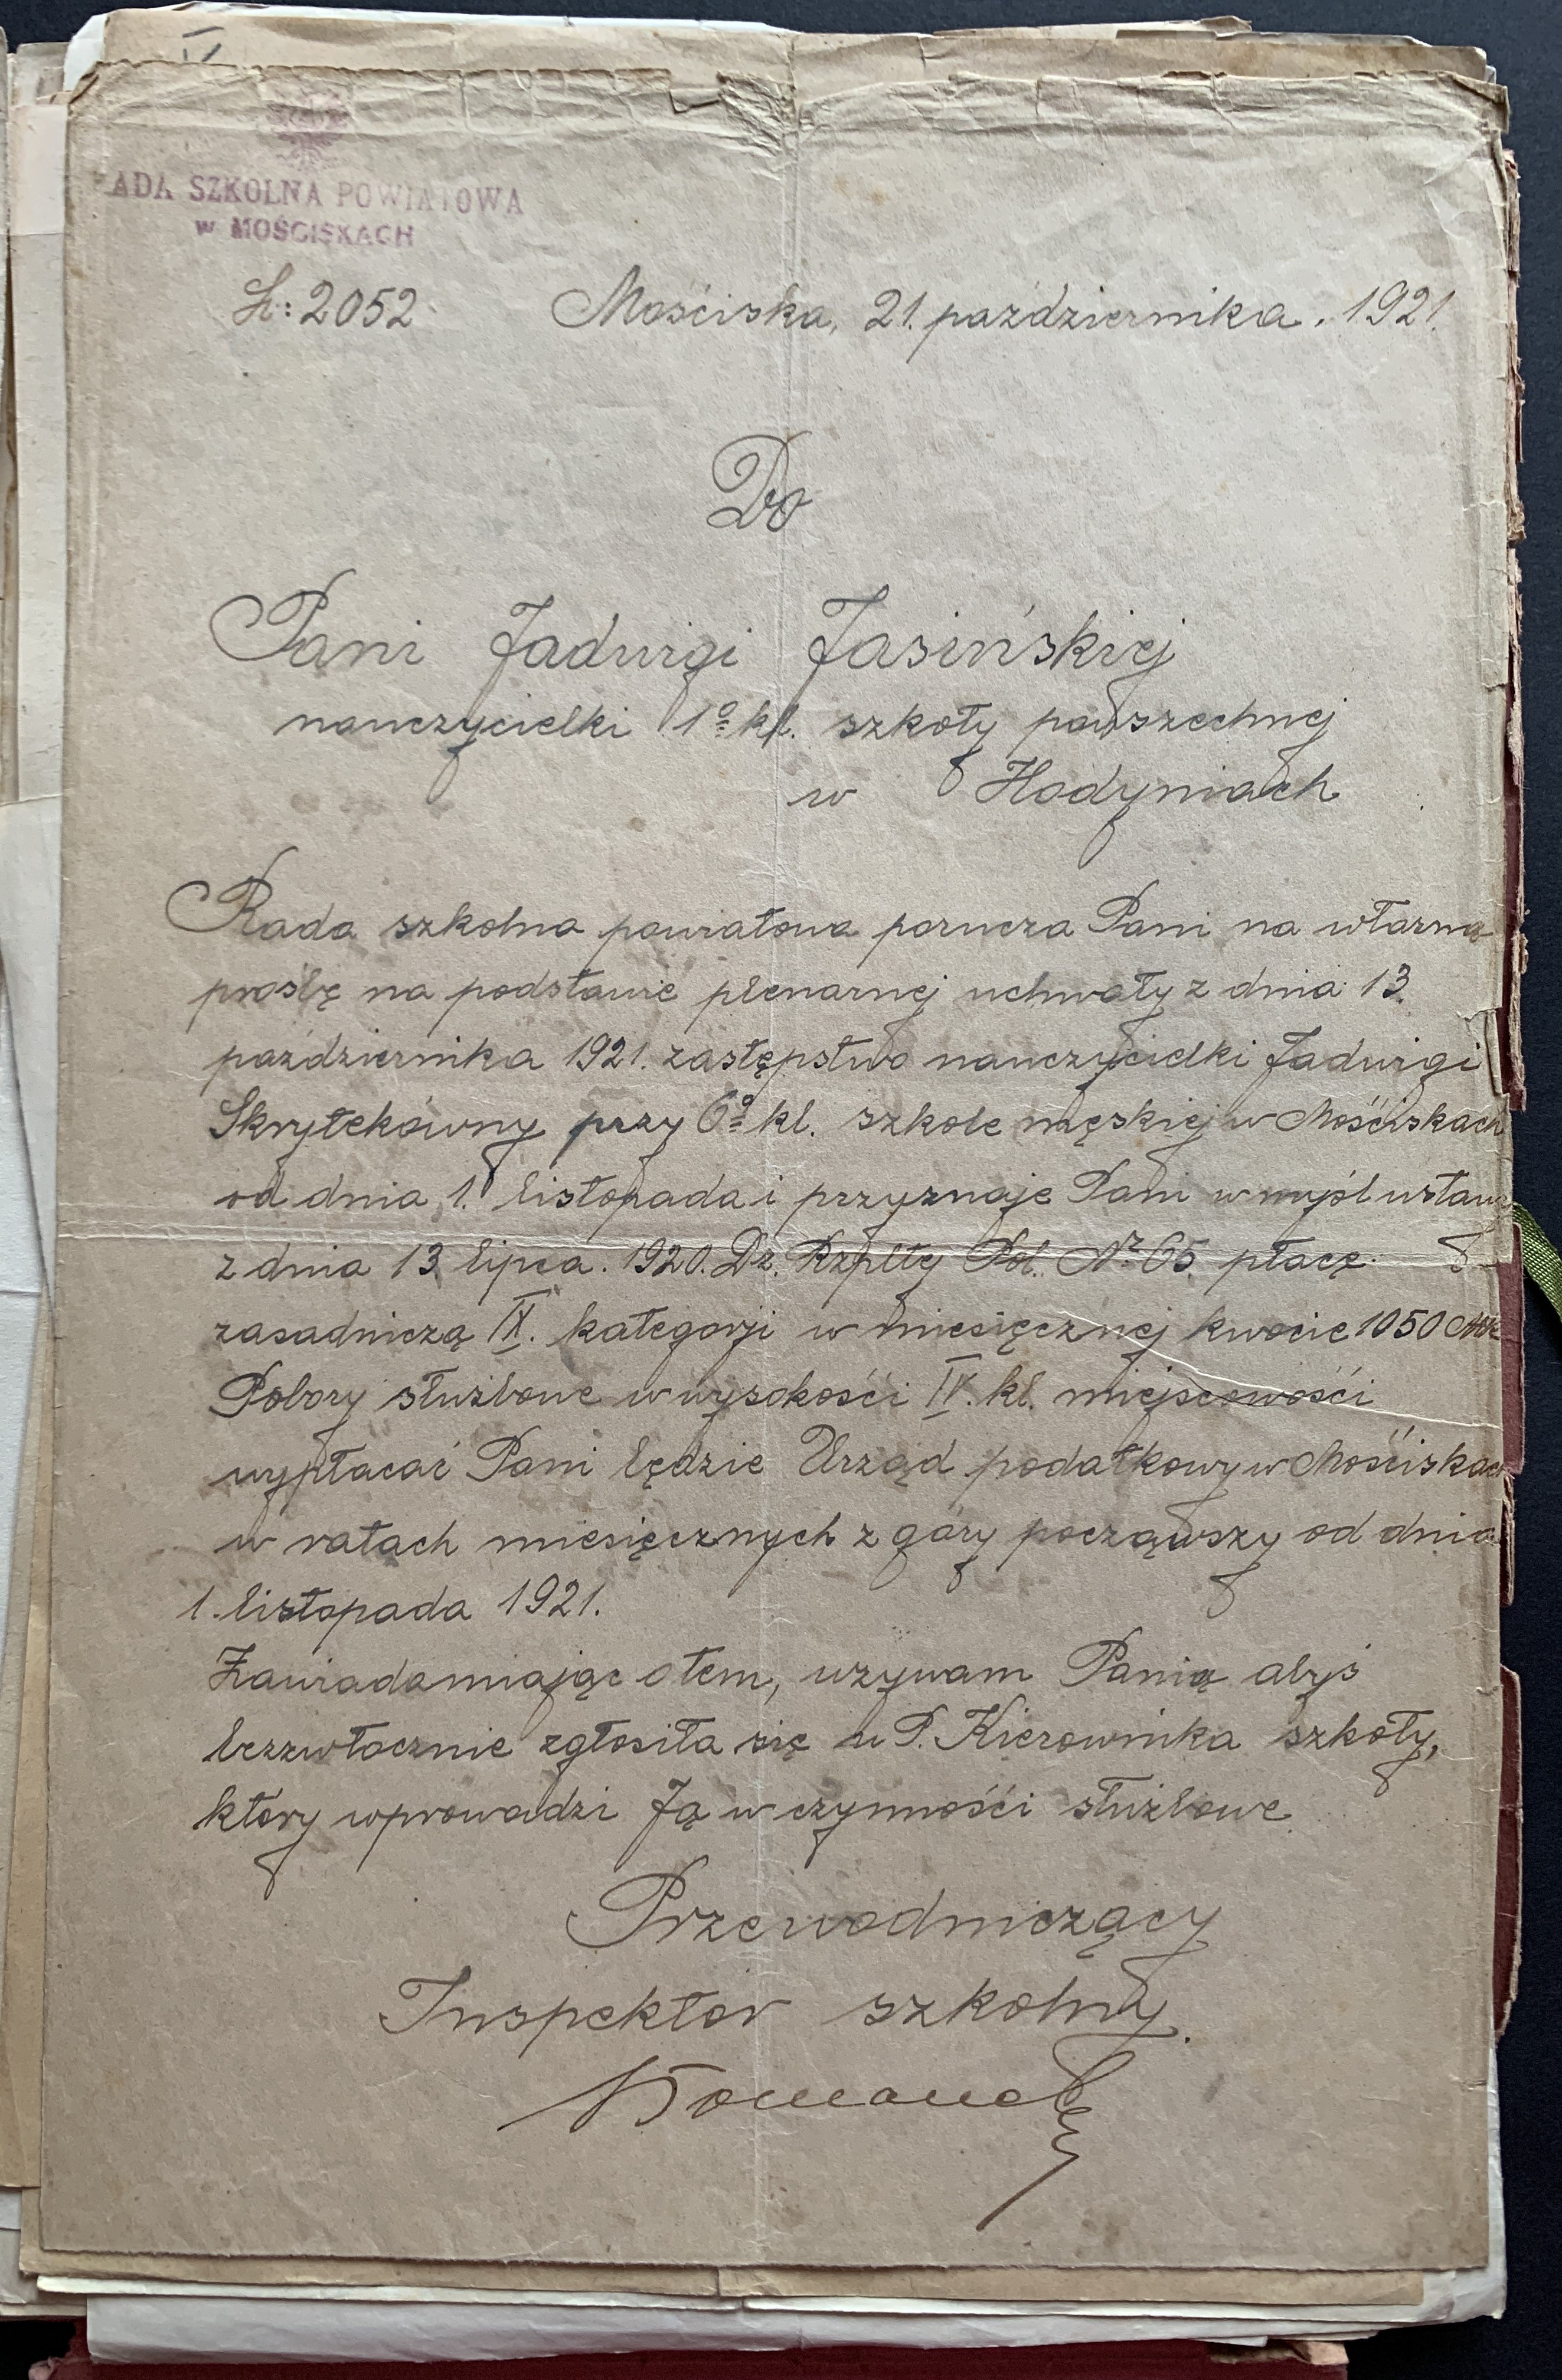 RADA SZKOLNA POWIATOWA
w MOŚCISKACH
L: 2052
Mościska, 21. października. 1921.
Do
Pani Jadwigi Jasińskiej
nauczycielki 1º kl. szkoły powszechnej
w Hodyniach
Rada szkolna powiatowa porucza Pani na własną
prośbę na podstawie plenarnej uchwały z dnia 13.
października 1921. zastępstwo nauczycielki Jadwigi
przy 6º kl. szkole męskiej w Mościskach
od dnia 1. listopada i przyznaje Pani w myśl ustawy
z dnia 13. lipca. 1920. Dz. Rzplty Pol. Nº 65. płacę
zasadniczą IX. kategorji w miesięcznej kwocie 1050 Mk
Pobory służbowe w wysokości IV. kl. miejscowości
wypłacać Pani będzie Urząd podatkowy w Mościskach
w ratach miesięcznych z góry począwszy od dnia
1. listopada 1921.
Zawiadamiając o tem, wzywam Panią abyś
bezzwłocznie zgłosiła się u P. Kierownika szkoły,
który wprowadzi Ją w czynności służbowe.
Przewodniczący
Inspektor szkolny.